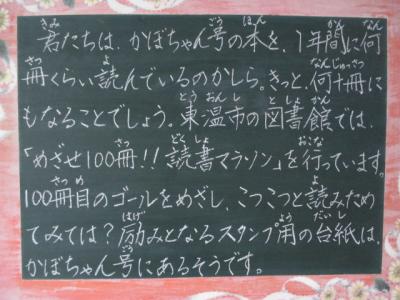 君たちは、かぼちゃん号の本を、1年間に何
冊くらい読んでいるのかしら。きっと、何十冊に
もなることでしょう。東温市の図書館では、
「めざせ100冊!!読書マラソン」を行っています。
100冊目のゴールをめざし、こつこつと読みため
てみては?励みとなるスタンプ用の台紙は、
かぼちゃん号にあるそうです。